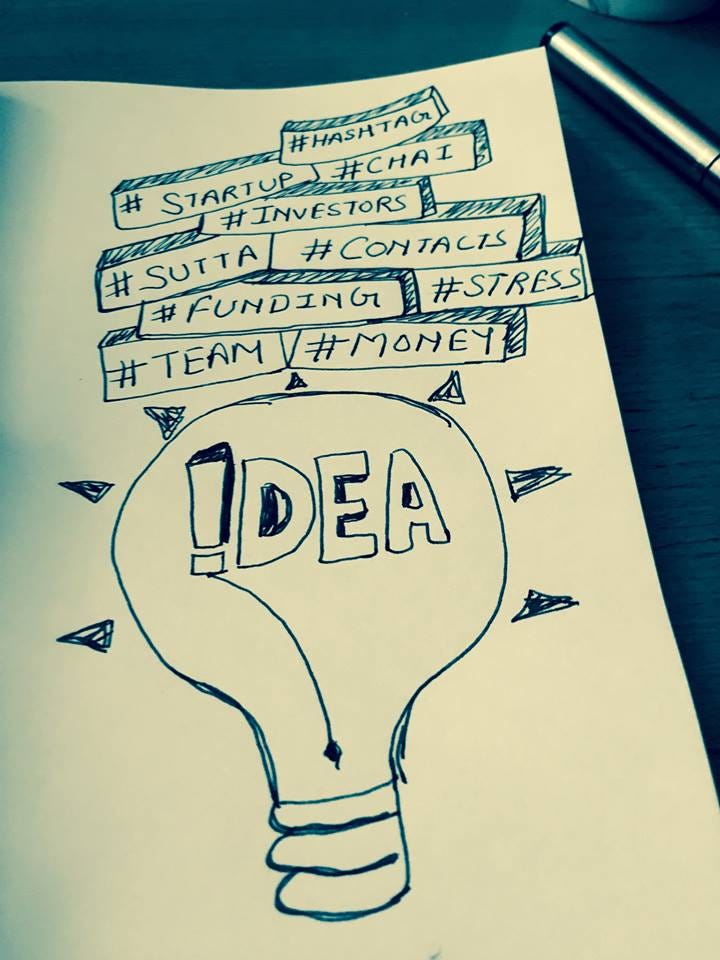 #HASHTAG
#CHAI
# STARTUP
#INVESTORS
#SUTTA #CONTACTS
#FUNDING #STRESS
#TEAM #MONEY
!DEA